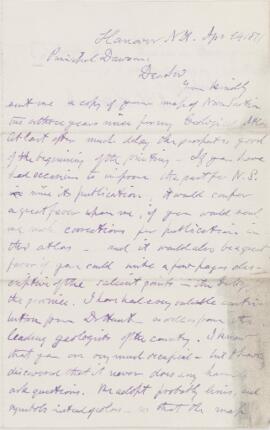 Hanover N.H. Apr 14. 87
Principal Dawson
Dear Sir
You kindly
sent me a copy of your map of Nova Scotia
two or three years since for my Geological Atlas
At last after much delay the prospect is good
of the beginning of the printing - If you have
had occasion to improve the part for N.S.
since its publication, it would confer
a great favor upon me, if you would send
me such corrections for publication in
this atlas - and it would also be a great
favor if you could write a few pages des-
criptive of the salient points in the Geology of
the province. I have had a very valuable contri-
bution from Dr Hunt - as also from the
leading geologists of the country. I know
that you are very much occupied - but I have
discovered that it never does any harm to
ask questions. We adopt probably lines, and
symbols instead of colors - so that the map